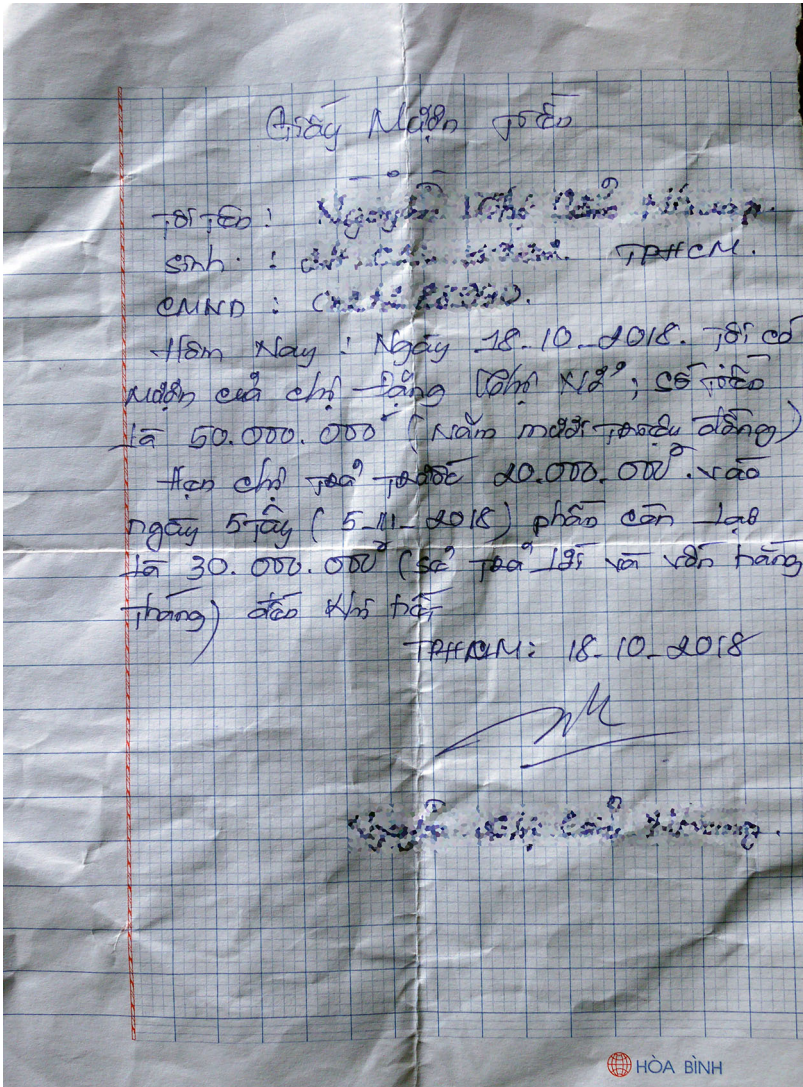 Giấy Mượn Tiền
Tôi Tên:
Sinh: TPHCM.
CMND:
Hôm Nay: Ngày 18-10-2018. Tôi có
mượn của chị Đặng Thị Nở, số tiền
là 50.000.000đ (Năm mươi triệu đồng)
Hẹn chị trả trước 20.000.000đ. vào
ngày 5 Tây (5-11-2018) phần còn lại
là 30.000.000đ (sẻ trả lời và vốn hằng
tháng) đến khi hết
TPHCM: 18-10-2018
HÒA BÌNH